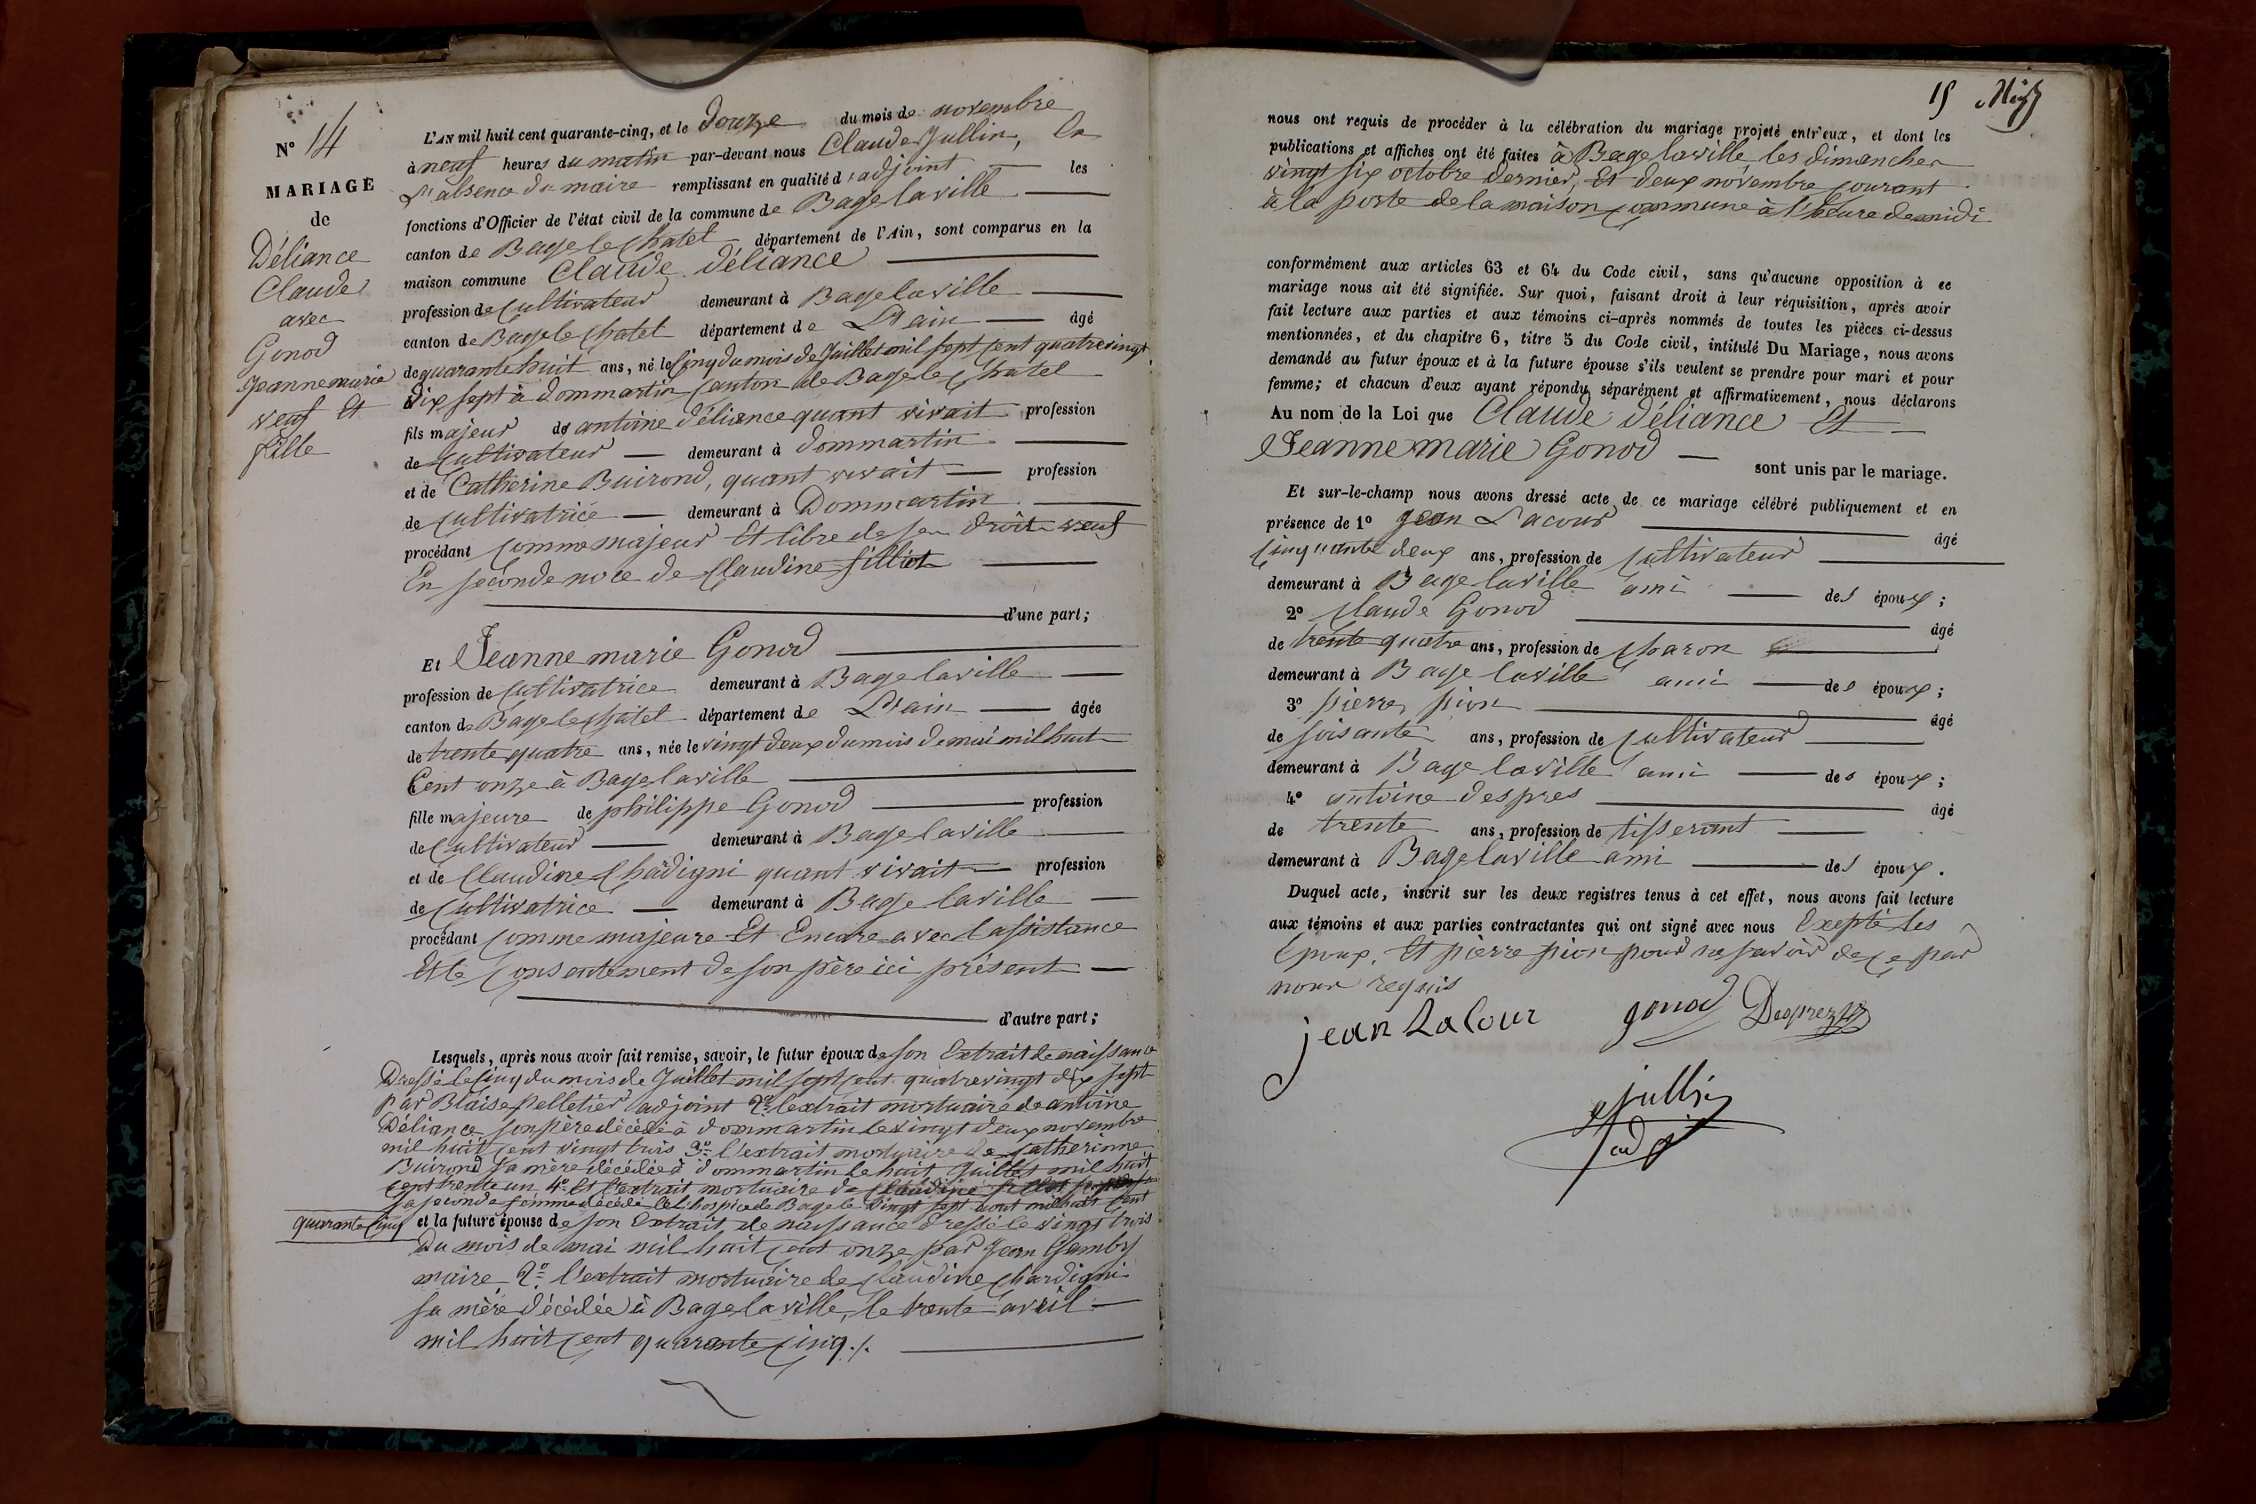 N° 14
MARIAGE
de
Déliance
Claude
avec
Gonod
Jeanne marie
veuf Et
fille
L'AN mil huit cent quarante-cinq, et le douze du mois de novembre
à neuf heures du matin par-devant nous Claude Jullin, En
L'absence du maire remplissant en qualité d'adjoint les
fonctions d'Officier de l'état civil de la commune de Bagelaville
canton de Bagelechatel département de l'Ain, sont comparus en la
maison commune Claude déliance
profession de cultivateur demeurant à Bagelaville
canton de Bagelechatel département de L'ain âgé
de quarante huit ans, né le cinq du mois de Juillet mil sept cent quatrevingt
dix sept à dommartin canton de Bagelechatel
fils majeur de antoine déliance quant vivait profession
de cultivateur demeurant à dommartin
et de Catherine Buirond, quant vivait profession
de cultivatrice demeurant à Dommartin
procédant comme majeur Et libre de ses droits veuf
En seconde noce de Claudine filliot
d'une part;
Et Jeanne marie Gonod
profession de cultivatrice demeurant à Bagelaville
canton de Bagelechatel département de L'ain âgée
de trente quatre ans, née le vingt deux du mois de mai mil huit
Cent onze à Bagelaville
fille majeure de philippe Gonod profession
de cultivateur demeurant à Bagelaville
et de Claudine Chardigni quant vivait profession
de cultivatrice demeurant à Bagelaville
procédant comme majeure Et Encore avec l'assistance
Et le consentement de son père ici présent
d'autre part;
Lesquels, après nous avoir fait remise, savoir, le futur époux de son Extrait de naissance
Dressé le cinq du mois de Juillet mil sept cent quatrevingt dix sept
par Blaise pelletier adjoint 2° l'extrait mortuaire de antoine
Déliance son père décédé à dommartin le vingt deux novembre
mil huit cent vingt trois 3° l'extrait mortuaire de catherinne
Buirond sa mère décédée à dommartin le huit Juillet mil huit
cent trente un 4° Et l'extrait mortuaire de Claudine
sa seconde femme décédée à l'hospice de Bage le vingt sept aout mil huit cent
quarante cinq et la future épouse de son Extrait de naissance dressé le vingt trois
Du mois de mai mil huit cent onze par Jean Gamby
maire 2° l'extrait mortuaire de claudine chardigni
sa mère décédée à Bagelaville, le trente avril
mil huit cent quarante cinq ./.
15
nous ont requis de procéder à la célébration du mariage projeté entr'eux, et dont les
publications et affiches ont été faites à Bagelaville les dimanches
vingt six octobre dernier, Et deux novembre courant
à la porte de la maison commune à l'heure de midi
conformément aux articles 63 et 64 du Code civil, sans qu'aucune opposition à ce
mariage nous ait été signifiée. Sur quoi, faisant droit à leur réquisition, après avoir
fait lecture aux parties et aux témoins ci-après nommés de toutes les pièces ci-dessus
mentionnées, et du chapitre 6, titre 5 du Code civil, intitulé Du Mariage, nous avons
demandé au futur époux et à la future épouse s'ils veulent se prendre pour mari et pour
femme; et chacun d'eux ayant répondu séparément et affirmativement, nous déclarons
Au nom de la Loi que Claude déliance Et
Jeanne marie Gonod
sont unis par le mariage.
Et sur-le-champ nous avons dressé acte de ce mariage célébré publiquement et en
présence de 1° Jean Lacour âgé
cinquante deux ans, profession de cultivateur
demeurant à Bagelaville ami des époux;
2° Claude Gonod âgé
de trente quatre ans, profession de charon
demeurant à Bagelaville ami des époux;
3° pierre pion âgé
de soisante ans, profession de cultivateur
demeurant à Bagelaville ami des époux;
4° antoine despres âgé
de trente ans, profession de tisserant
demeurant à Bagelaville ami des époux.
Duquel acte, inscrit sur les deux registres tenus à cet effet, nous avons fait lecture
aux témoins et aux parties contractantes qui ont signé avec nous Excepté les
Epoux, Et pierre pion pour ne savoir de ce par
nous requis
jean Lacour gonod Desprez
jullin
adj